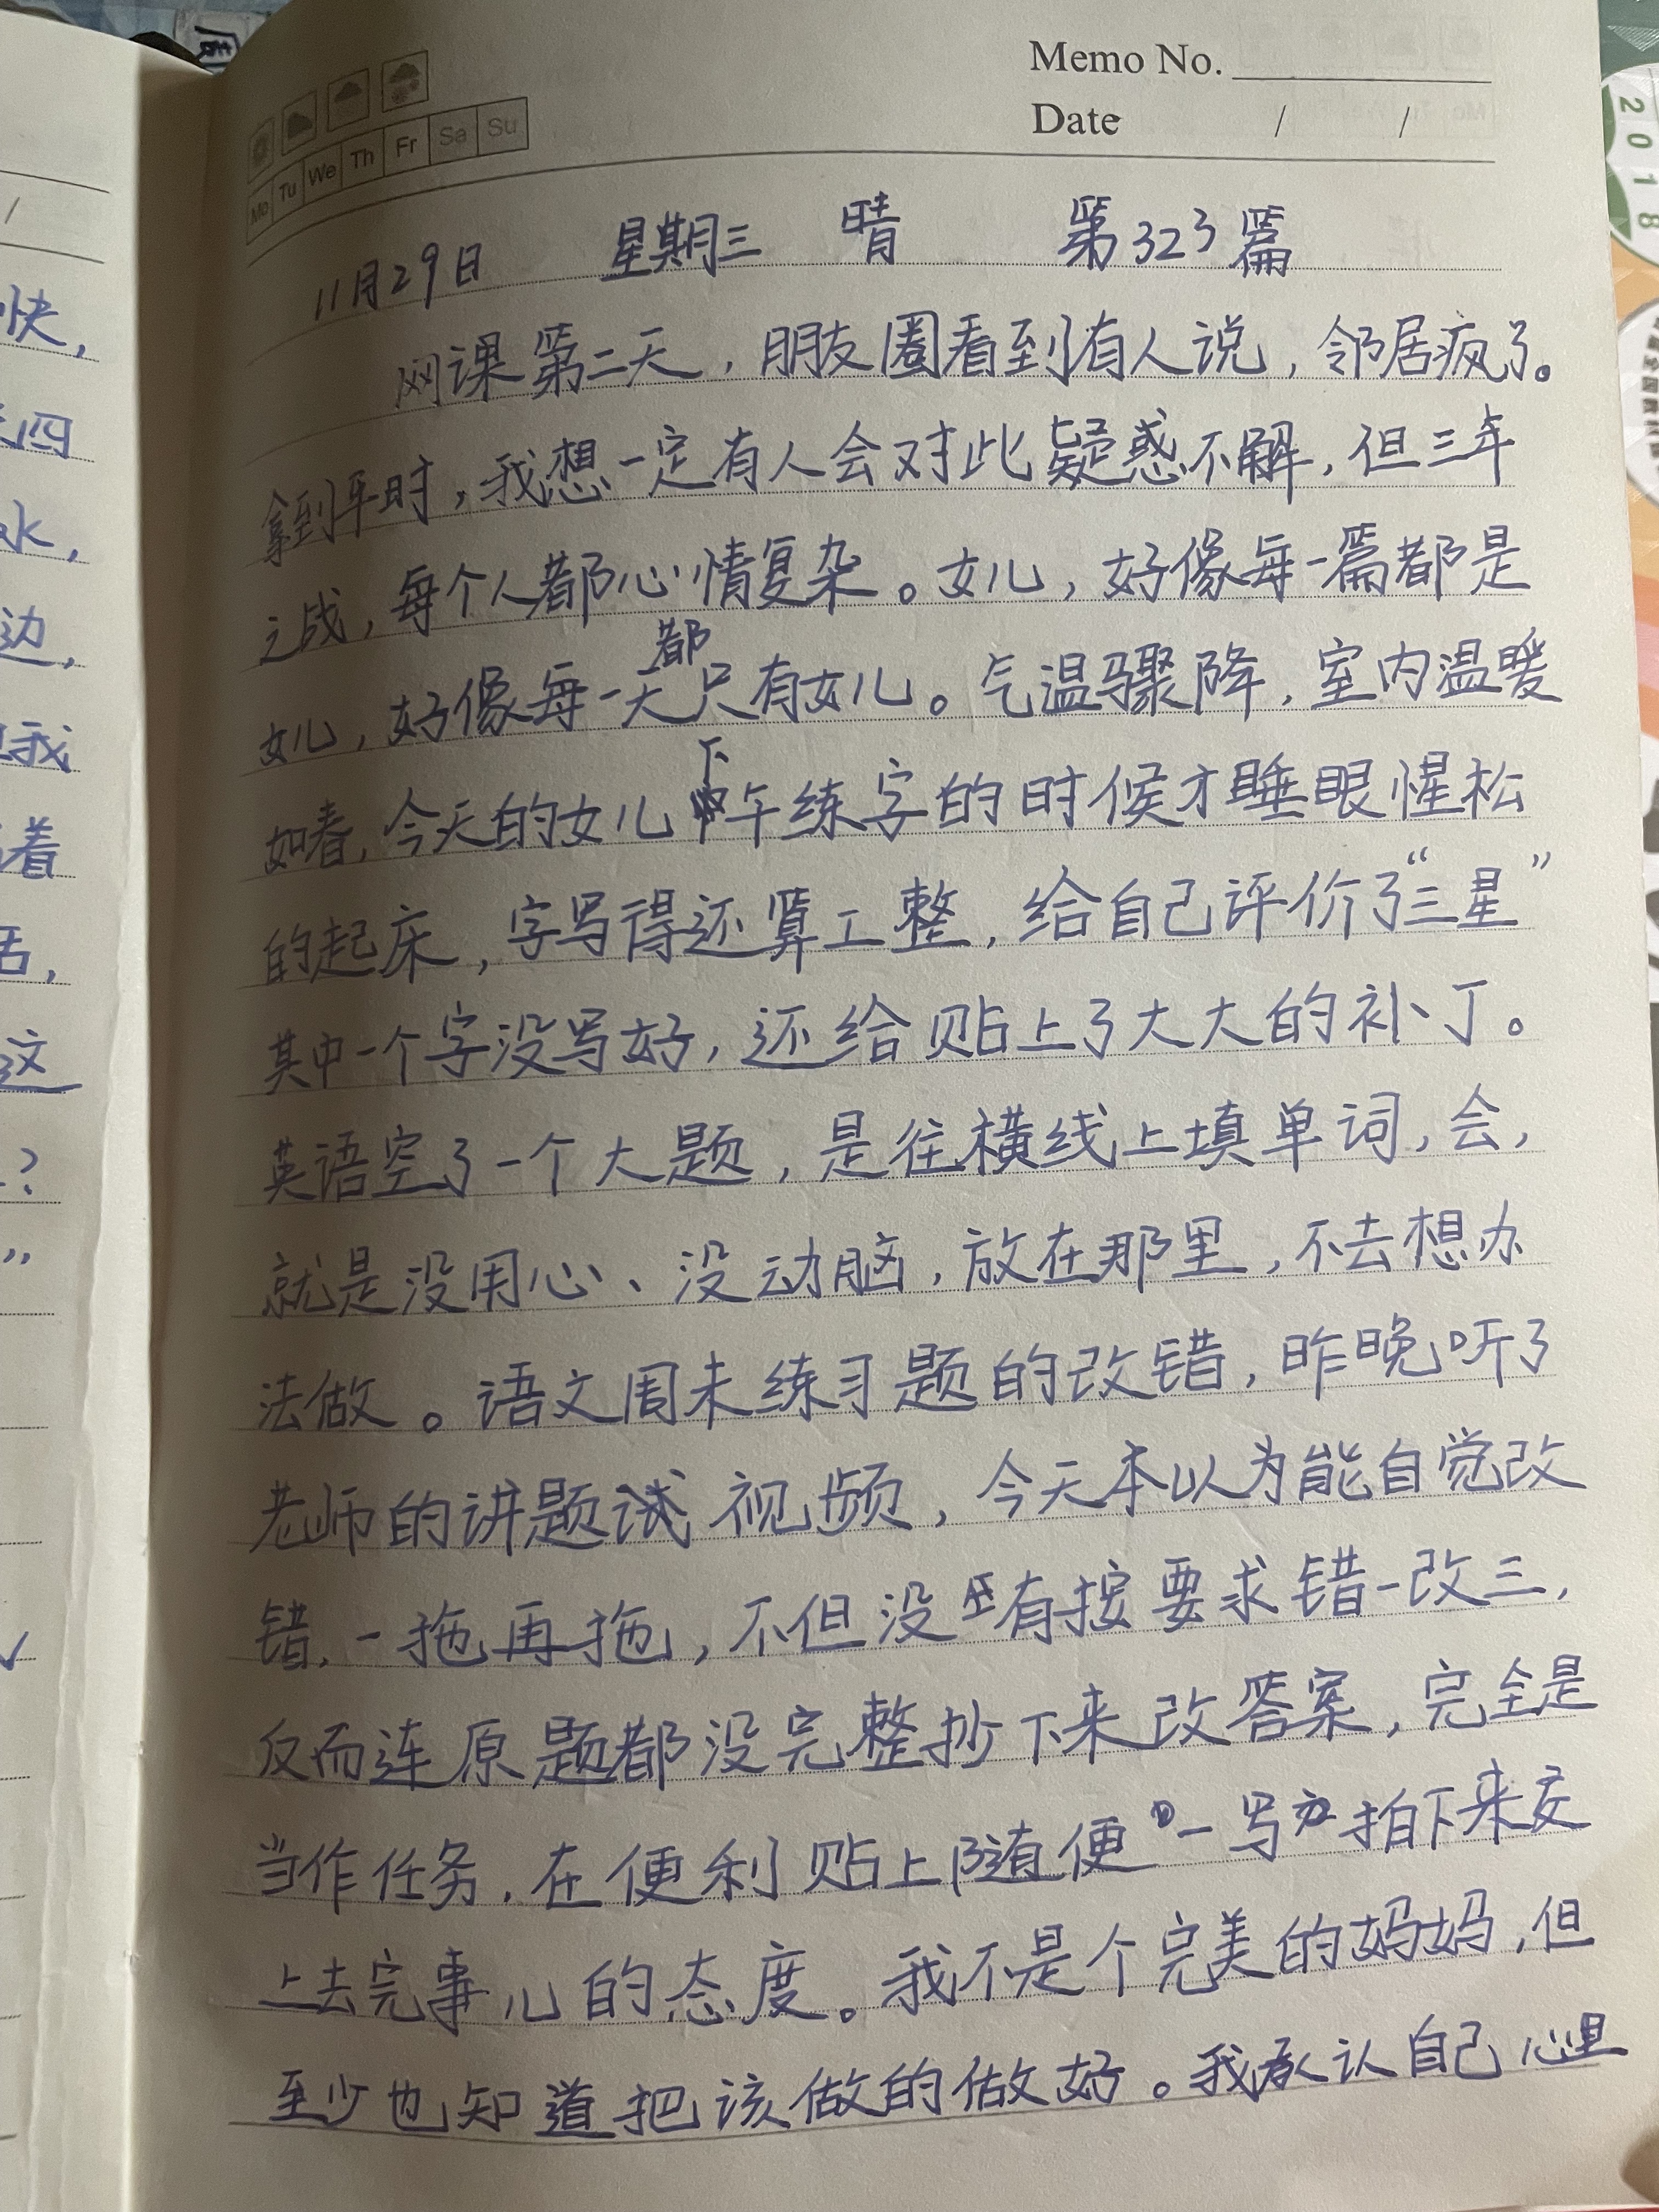 Memo No.
Date / /
Mo Tu We Th Fr Sa Su
11月29日 星期三 晴 第323篇
网课第二天，朋友圈看到有人说，邻居疯了。
拿到平时，我想一定有人会对此疑惑不解，但三年
之成，每个人都心情复杂。女儿，好像每一篇都是
女儿，好像每一天都只有女儿。气温骤降，室内温暖
如春，今天的女儿下午练字的时候才睡眼惺松
的起床，字写得还算工整，给自己评价了“三星”
其中一个字没写好，还给贴上了大大的补丁。
英语空了一个大题，是往横线上填单词，会，
就是没用心、没动脑，放在那里，不去想办
法做。语文周末练习题的改错，昨晚听了
老师的讲题视频，今天本以为能自觉改
错，一拖再拖，不但没有按要求错一改三，
反而连原题都没完整抄下来改答案，完全是
当作任务，在便利贴上随便一写拍下来交
上去完事儿的态度。我不是个完美的妈妈，但
至少也知道把该做的做好。我承认自己心里
快，
四
水，
边，
我
着
活，
这
？
”
2018